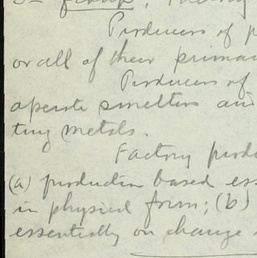 Producers of
or all of their primar
Producers of
operate smelters and
ting metals.
Factory produ
(a) production based ess
in physical form; (b)
essentially on change